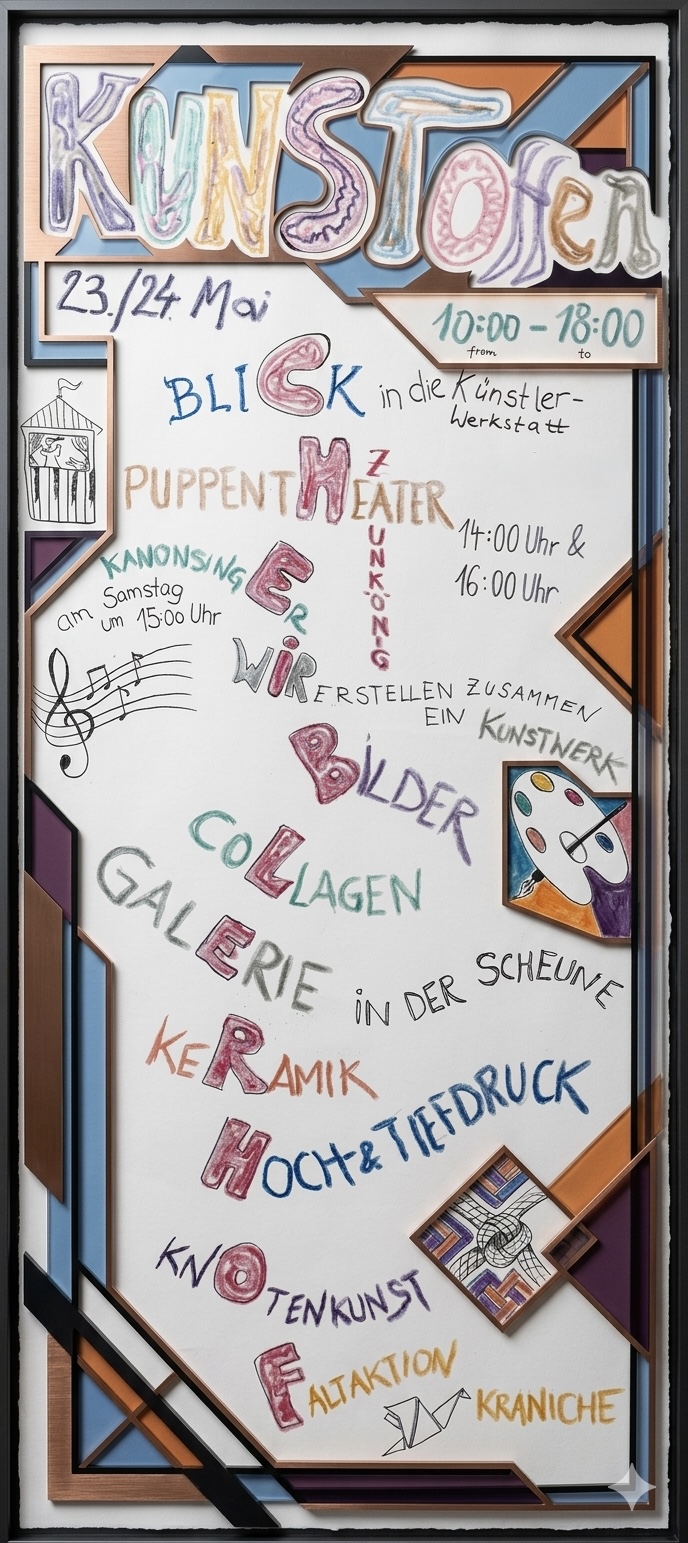 KUNSTOffen
23./24. Mai
10:00 - 18:00
from to
BLICK in die Künstler-
Werkstatt
PUPPENTHEATER
ZAUNKÖNIG
14:00 Uhr &
16:00 Uhr
KANONSINGER
am Samstag
um 15:00 Uhr
WiR ERSTELLEN ZUSAMMEN
EIN KUNSTWERK
BiLDER
COLLAGEN
GALERIE iN DER SCHEUNE
KERAMIK
HOCH & TIEFDRUCK
KNOTENKUNST
FALTAKTION
KRANICHE